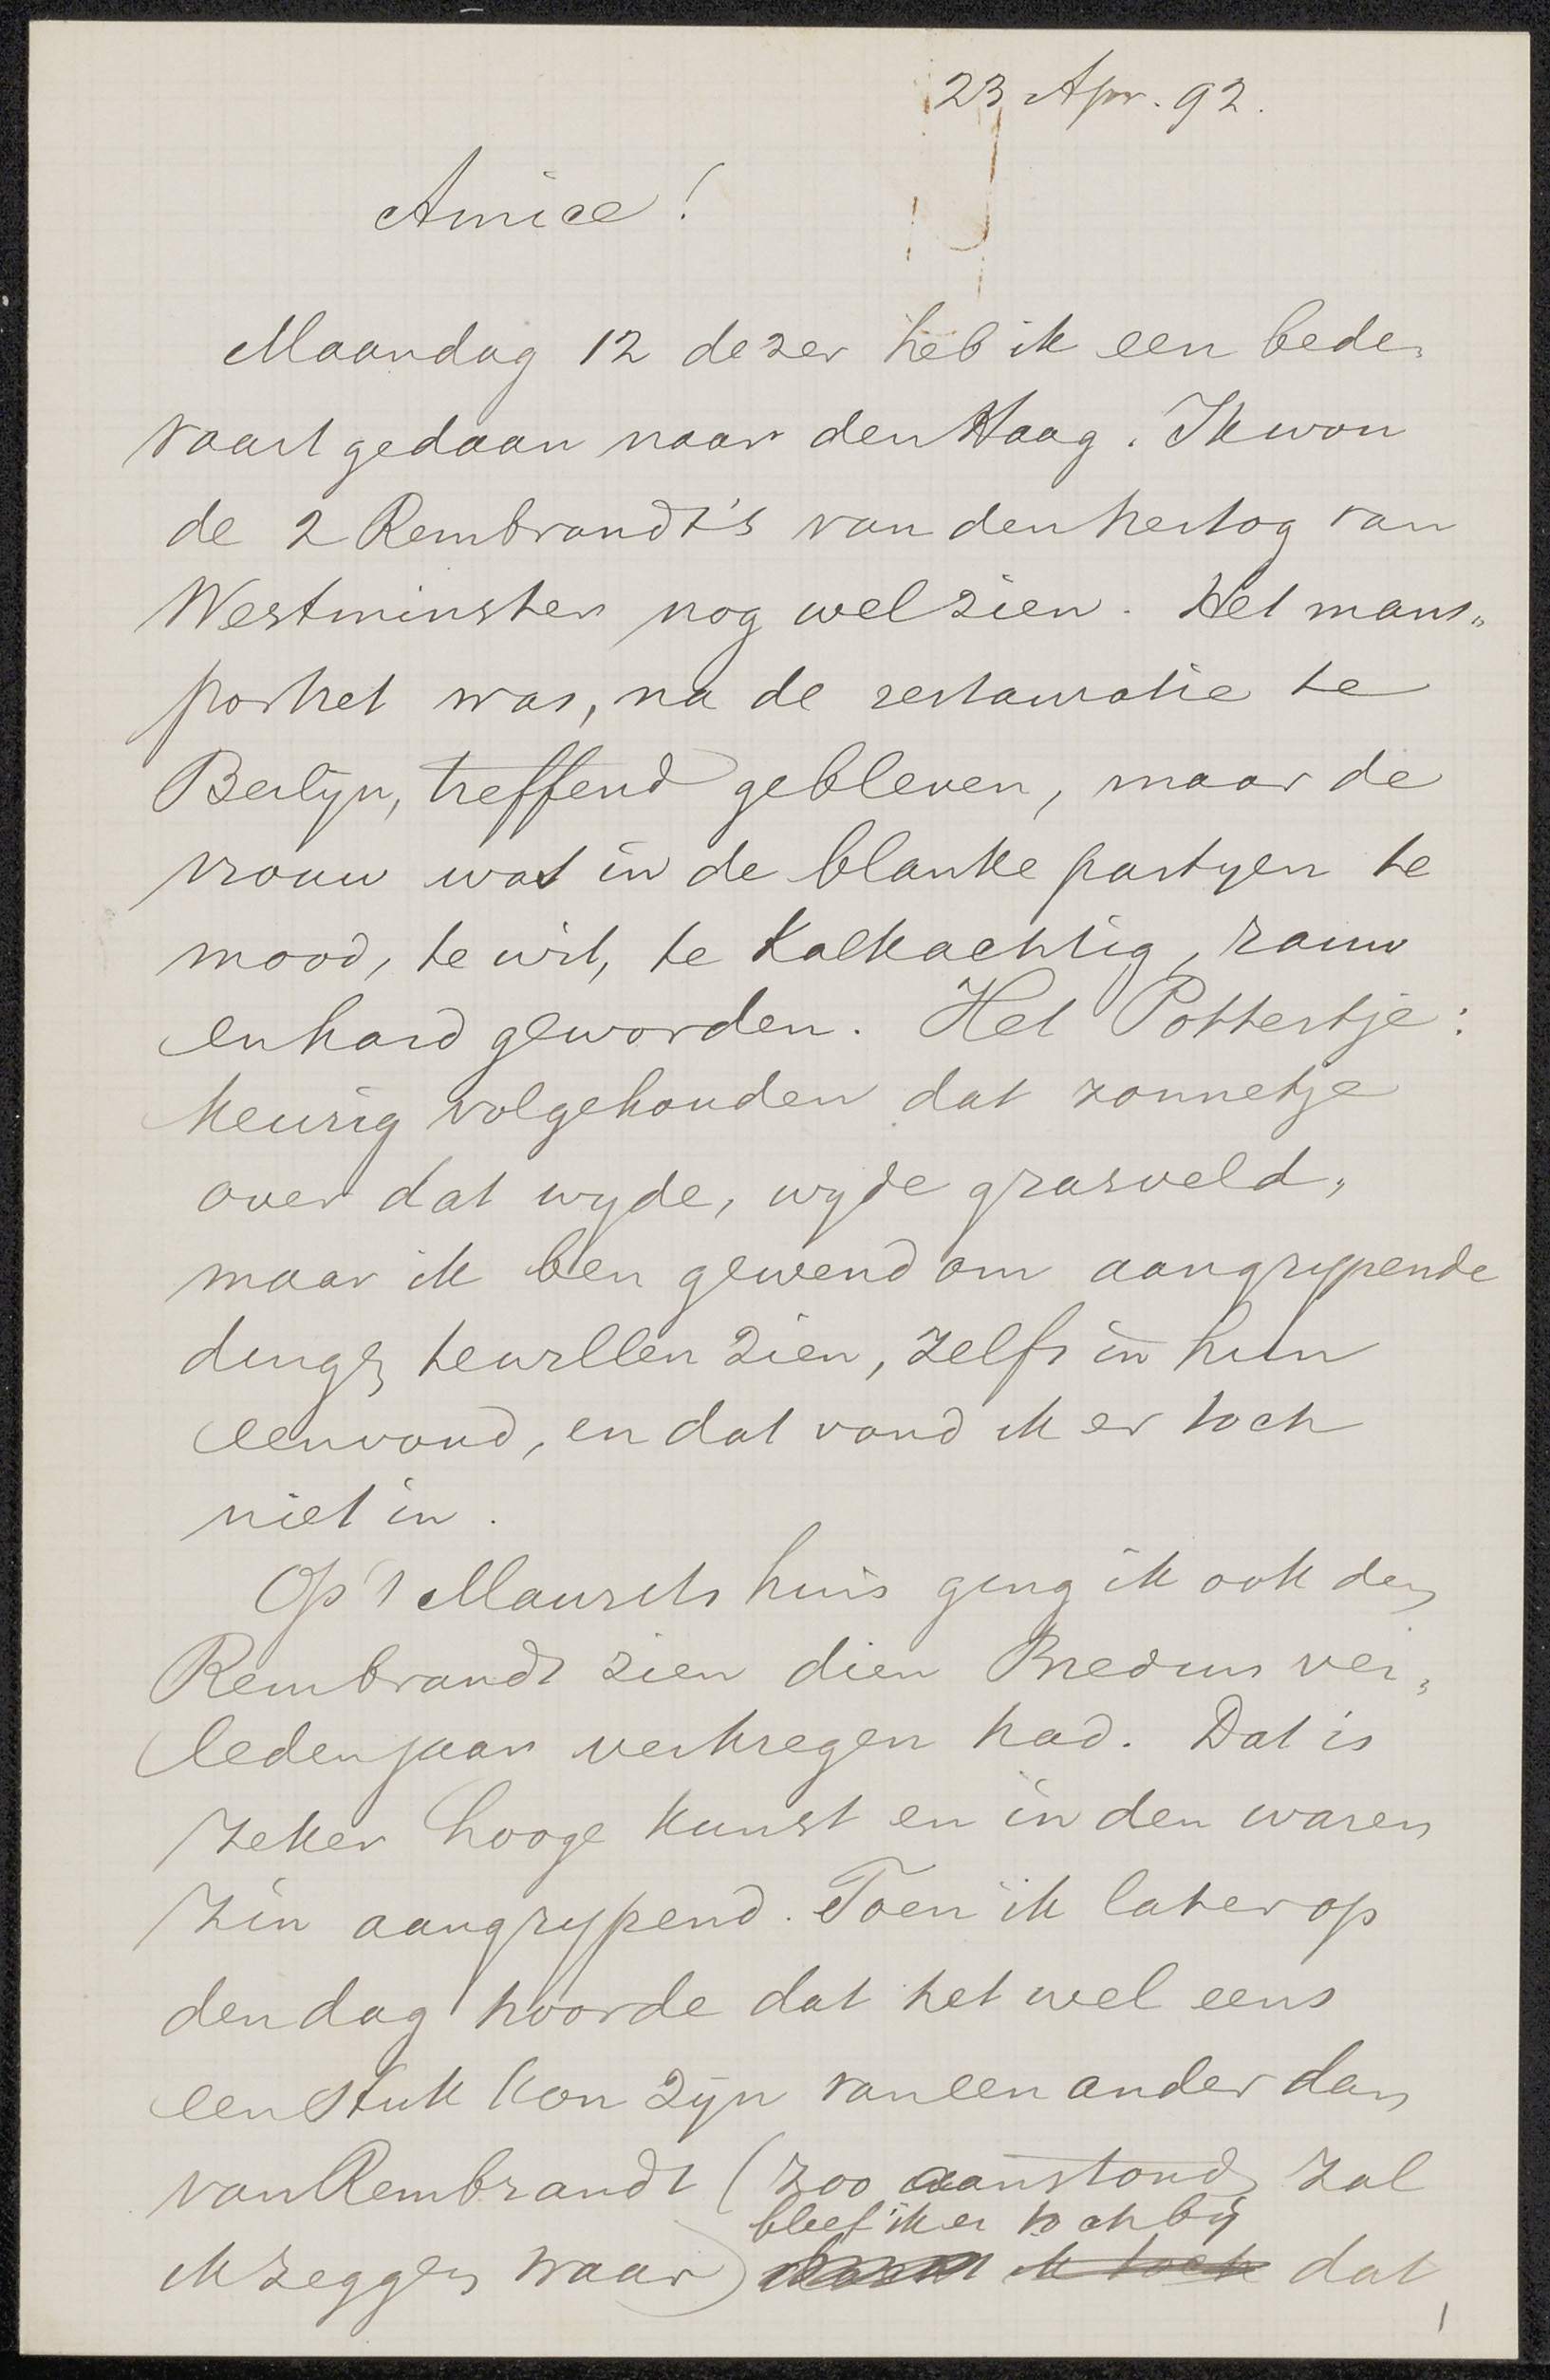 23 Apr. 92.
Amice!
Maandag 12 dezer heb ik een bede-
vaart gedaan naar den Haag. Ik wou
de 2 Rembrandt's van den hertog van
Westminster nog wel zien. Het mans-
portret was, na de restauratie te
Berlyn, treffend gebleven, maar de
vrouw was in de blanke partyen te
mooi, te wit, te kalkachtig, rauw
en hard geworden. Het Pottertje:
keurig volgehouden dat zonnetje
over dat wyde, wyde grasveld,
maar ik ben gewend om aangrypende
dingen te willen zien, zelfs in hun
eenvoud, en dat vond ik er toch
niet in.
Op 't Maurits huis ging ik ook den
Rembrandt zien dien Bredius ver-
leden jaar verkregen had. Dat is
zeker hooge kunst en in den waren
zin aangrypend. Toen ik later op
den dag hoorde dat het wel eens
een stuk kon zijn van een ander dan
van Rembrandt (zoo aanstonds zal
bleef ik er toch bij
ik zeggen waar) ik toch dat
1